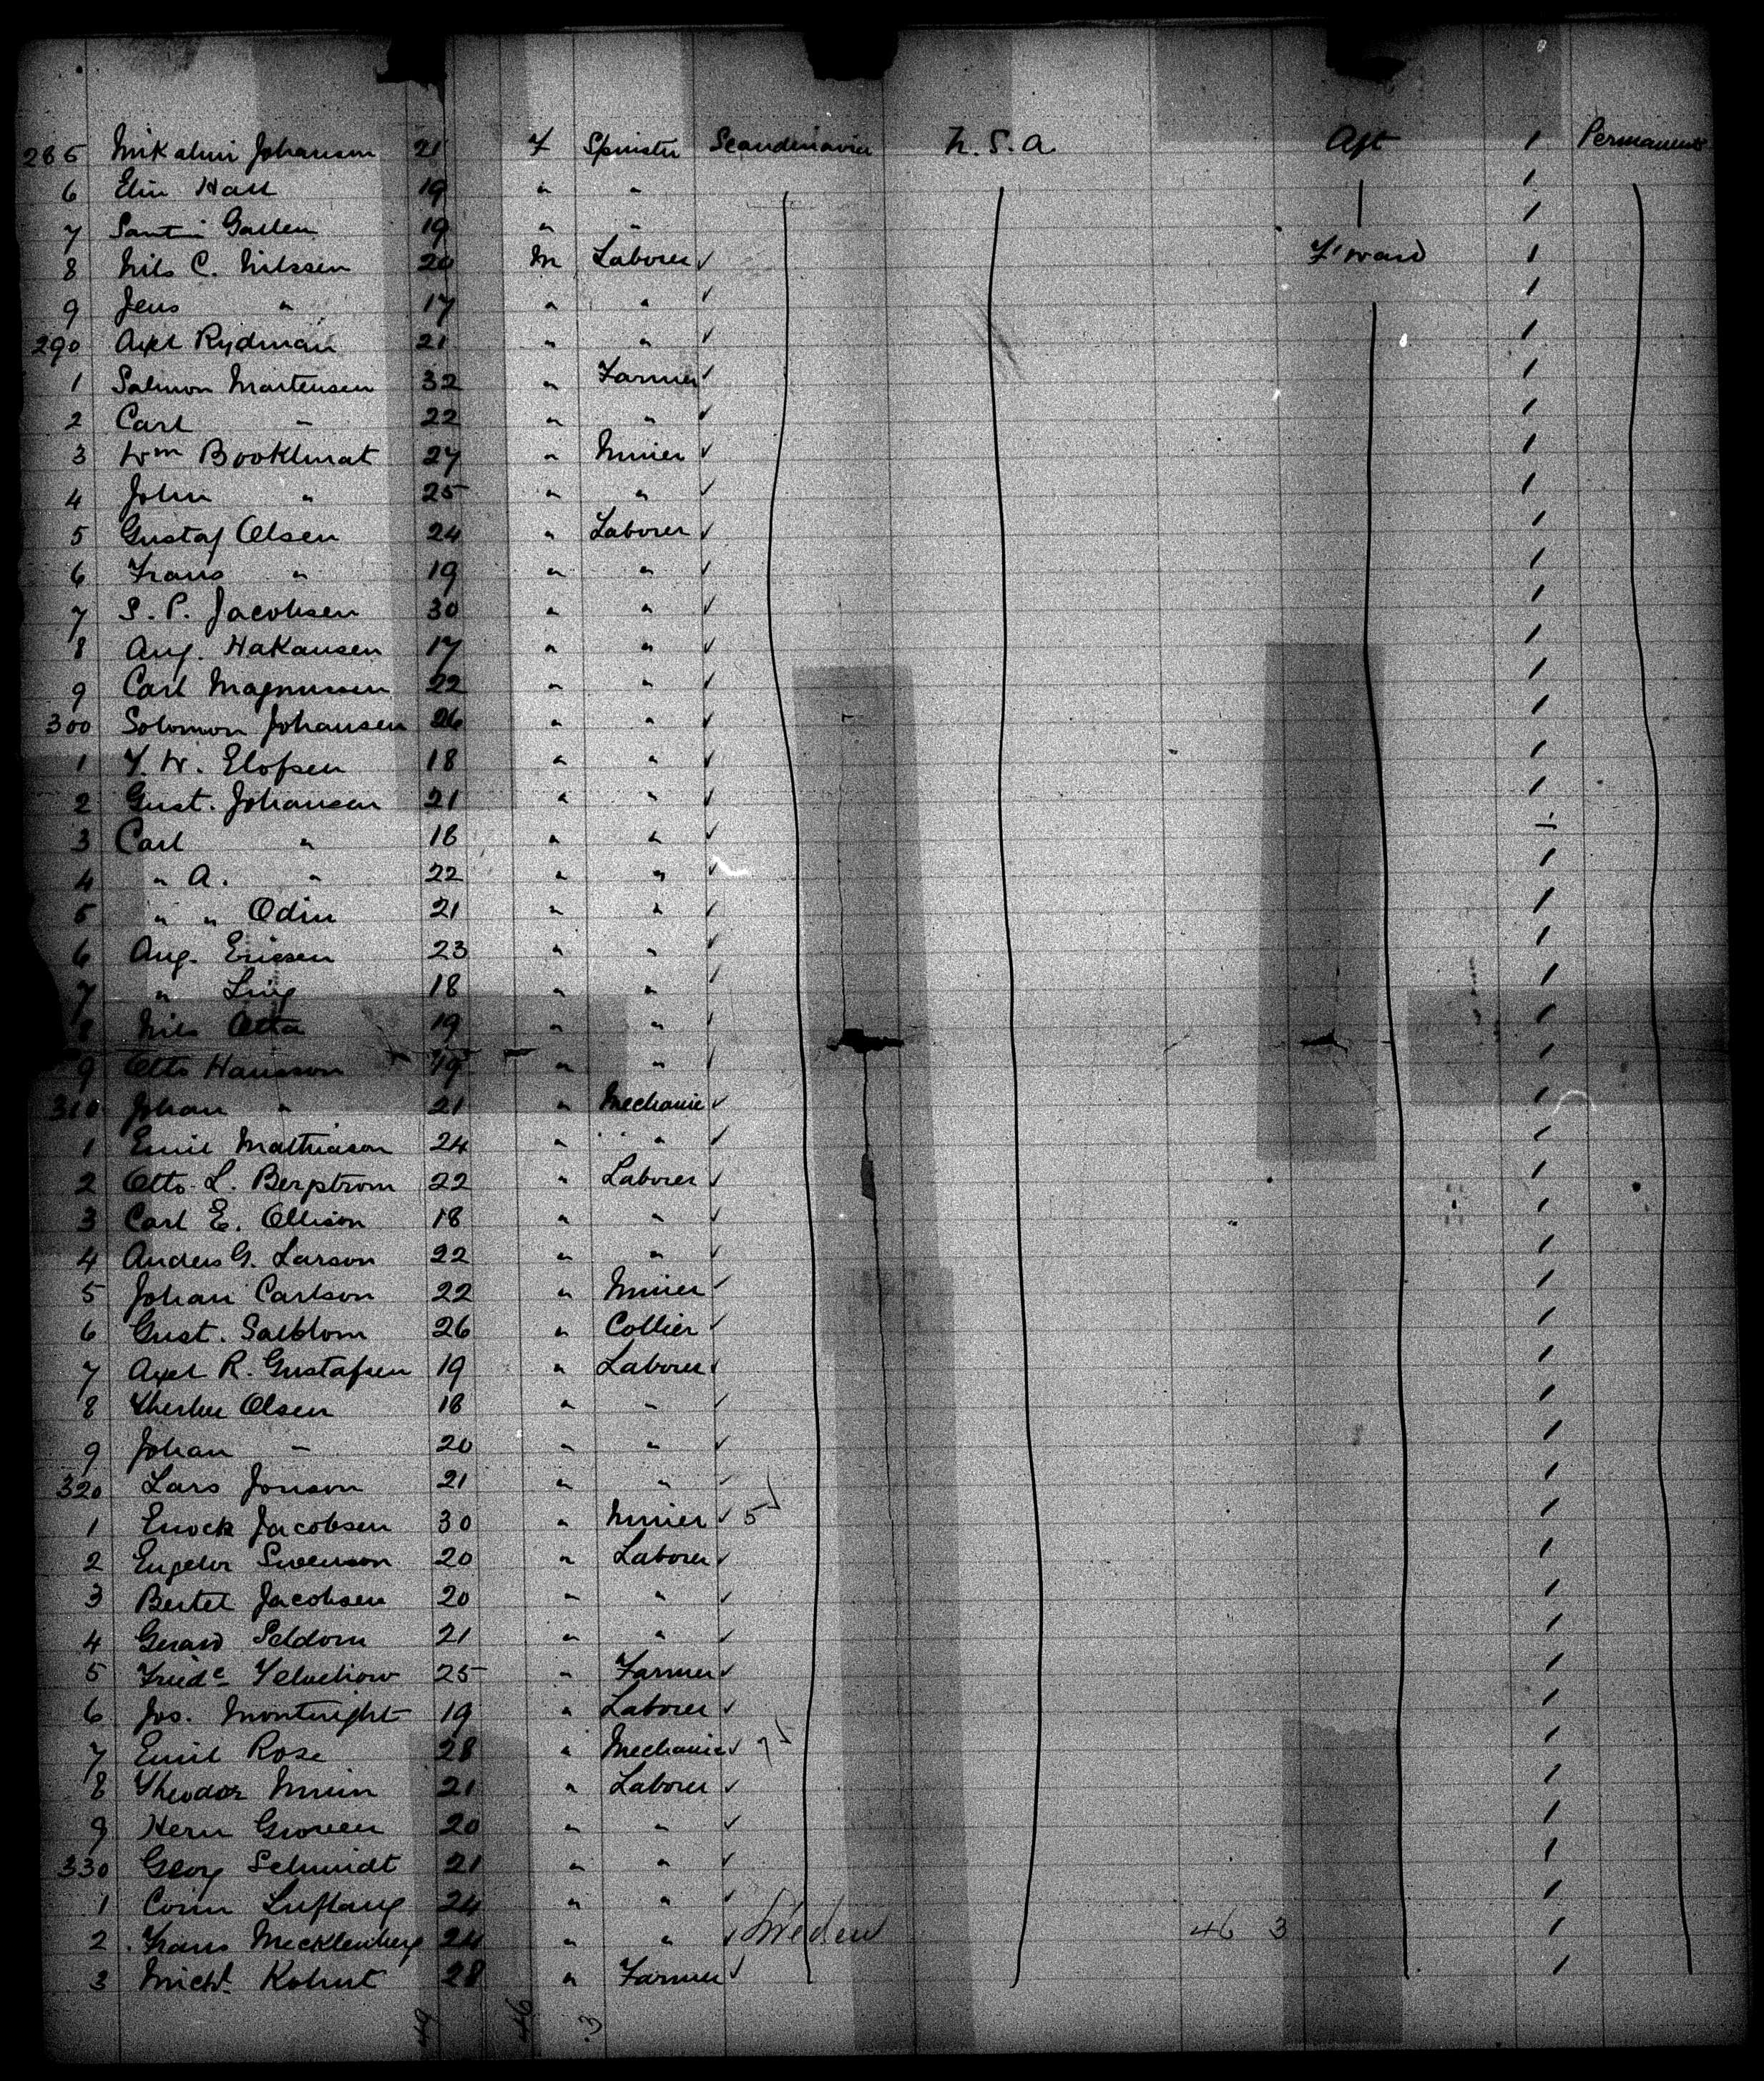 285 Mikalini Johanson 21 F Spinster Scandinavia U.S.A Aft 1 Permanent
6 Elin Hall 19 " " 1
7 Galler 19 " " 1
8 Nils C. Nilssen 20 M Laborer ✓ F'ward 1
9 Jens " 17 " " ✓ 1
290 Axel Rydman 21 " " ✓ 1
1 Salmon Martensen 32 " Farmer ✓ 1
2 Carl " 22 " " ✓ 1
3 Wm Booklmat 27 " Miner ✓ 1
4 John " 25 " " ✓ 1
5 Gustaf Olsen 24 " Laborer ✓ 1
6 Frans " 19 " " ✓ 1
7 S. P. Jacobsen 30 " " ✓ 1
8 Aug. Hakansen 17 " " ✓ 1
9 Carl Magnussen 22 " " ✓ 1
300 Solomon Johansen 26 " " ✓ 1
1 F. W. Elofsen 18 " " ✓ 1
2 Gust. Johansen 21 " " ✓ 1
3 Carl " 18 " " ✓ 1
4 " A. " 22 " " ✓ 1
5 " " Odin 21 " " ✓ 1
6 Aug. Ericsen 23 " " ✓ 1
7 " Ling 18 " " ✓ 1
8 Nils Otta 19 " " ✓ 1
9 Otto Hansson 19 " " ✓ 1
310 Johan " 21 " Mechanic ✓ 1
1 Emil Mathiason 24 " " ✓ 1
2 Otto L. Bergstrom 22 " Laborer ✓ 1
3 Carl E. Ollison 18 " " ✓ 1
4 Anders G. Larson 22 " " ✓ 1
5 Johan Carlson 22 " Miner ✓ 1
6 Gust. Salblom 26 " Collier ✓ 1
7 Axel R. Gustafsen 19 " Laborer ✓ 1
8 Olsen 18 " " ✓ 1
9 Johan " 20 " " ✓ 1
320 Lars Jonson 21 " " ✓ 1
1 Enock Jacobsen 30 " Miner ✓ 5 1
2 Swenson 20 " Laborer ✓ 1
3 Bertel Jacobsen 20 " " ✓ 1
4 Gerard Seldom 21 " " ✓ 1
5 Fried^c 25 " Farmer ✓ 1
6 Jos. Montwight 19 " Laborer ✓ 1
7 Emil Rose 28 " Mechanic ✓ 1
8 Theodor 21 " Laborer ✓ 1
9 Herm Groven 20 " " ✓ 1
330 Georg Schmidt 21 " " ✓ 1
1 Luftang 24 " " ✓ 1
2 Frans Mecklenberg 24 " " ✓ Sweden 46 3 1
3 Michl. Kohnt 28 " Farmer ✓ 1
49 46 3